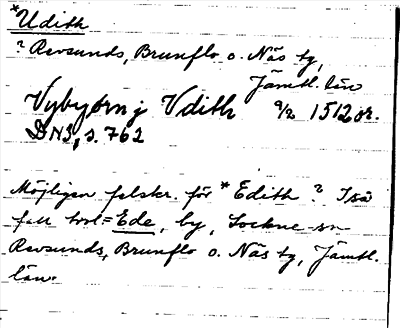 *Udith
? Revsunds, Brunflo o. Näs tg,
Jämtl. län
Vybyørn j Vdith 9/2 1512 or.
DN3, s. 762
Möjligen felskr. för *Edith? I så
fall trol = Ede, by, Lockne sn
Revsunds, Brunflo o. Näs tg, Jämtl.
län.